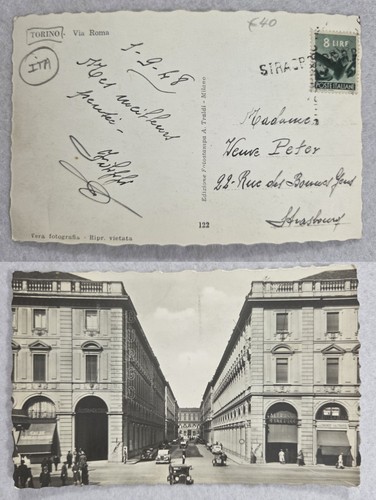 €40
TORINO - Via Roma
ITA
1-9-48
Mes meilleurs
pensées -
8 LIRE
POSTE ITALIANE
STRASP
Madame
Veuve Peter
22 - Rue des Bonnes Gens
Strasbourg
Edizione Fotostampa A. Traldi - Milano
122
Vera fotografia - Ripr. vietata